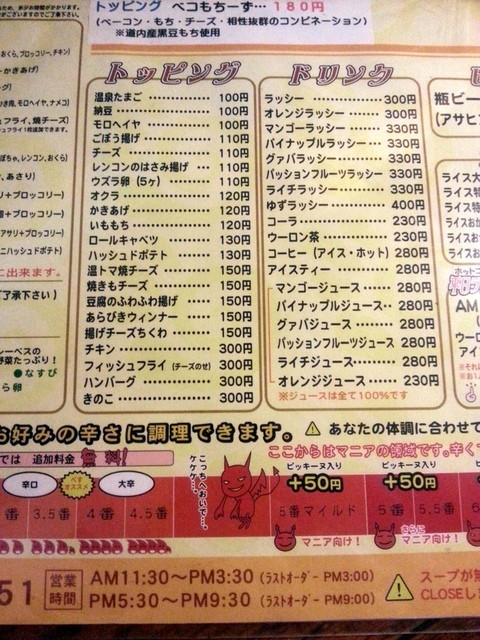 トッピング ベコもちーず… 180円
(ベーコン・もち・チーズ・相性抜群のコンビネーション)
※道内産黒豆もち使用
おくら、ブロッコリー、チキン)
トッピング
温泉たまご 100円
納豆 100円
モロヘイヤ 100円
ごぼう揚げ 110円
チーズ 110円
レンコンのはさみ揚げ 110円
ウズラ卵(5ヶ) 110円
オクラ 120円
かきあげ 120円
いももち 120円
ロールキャベツ 130円
ハッシュドポテト 130円
温トマ焼チーズ 150円
焼きもチーズ 150円
豆腐のふわふわ揚げ 150円
あらびきウィンナー 150円
揚げチーズちくわ 150円
チキン 300円
フィッシュフライ(チーズのせ) 300円
ハンバーグ 300円
きのこ 300円
ドリンク
ラッシー 300円
オレンジラッシー 300円
マンゴーラッシー 330円
パイナップルラッシー 330円
グァバラッシー 330円
パッションフルーツラッシー 330円
ライチラッシー 330円
ゆずラッシー 400円
コーラ 230円
ウーロン茶 230円
コーヒー(アイス・ホット) 280円
アイスティー 280円
マンゴージュース 280円
パイナップルジュース 280円
グァバジュース 280円
パッションフルーツジュース 280円
ライチジュース 280円
オレンジジュース 230円
※ジュースは全て100%です
瓶ビー
(アサヒ
ライス大
ライス特
ライス特
ライスお
ライスお
AM
ウーロ
アイ
に出来ます。
了承下さい)
レーベスの
野菜たっぷり!
●なすび
お好みの辛さに調理できます。
⚠ あなたの体調に合わせて
では 追加料金 無料!
ここからはマニアの領域です。辛く
こっちへおいで…。
ケケケ…。
辛口
べす オススメ
大辛
ピッキーヌ入り
+50円
ピッキーヌ入り
+50円
ピッキーヌ
+50円
番 3.5番 4番 4.5番
5番マイルド
5番 5.5番
マニア向け!
さらに
マニア向け!
51
営業時間
AM11:30〜PM3:30 (ラストオーダー PM3:00)
PM5:30〜PM9:30 (ラストオーダー PM9:00)
⚠ スープが無
CLOSEしま